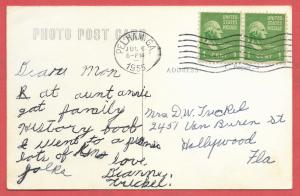 PHOTO POST CA
PELHAM, GA.
JUL 6
6-PM
1955
UNITED STATES POSTAGE
UNITED STATES POSTAGE
1 CENT
1 CENT
ADDRESS
Dear Mon
at aunt annie
got family
History book
I went to a
lots of
folks
love
Dianne
Trickel.
Mrs D.W. Trickel
2457 Van Buren St
Hollywood
Fla